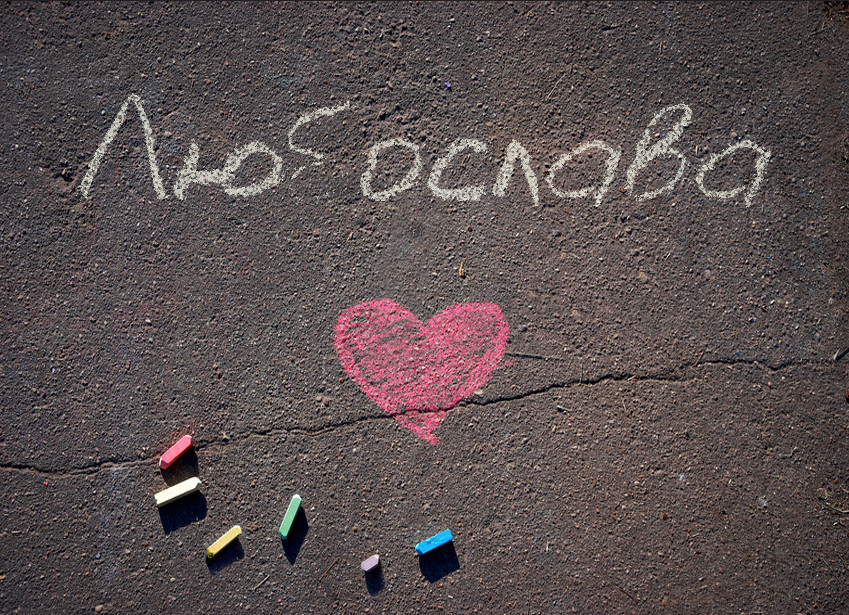 Любослава